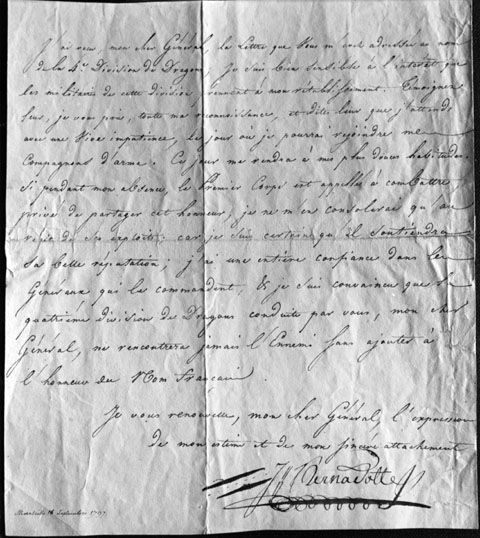 J'ai reçu, mon cher Général, la Lettre que Vous m'avez adressée au nom
de la 4e. Division de Dragons, Je suis bien sensible à l'intérêt que
les militaires de cette division, prennent à mon rétablissement. Témoignez
leur, je vous prie, toute ma reconnaissance, et dites leur que j'attends
avec une Vive impatience, le jour où je pourrai rejoindre mes
Compagnons d'armes. Ce jour me rendra à mes plus douces habitudes.
Si pendant mon absence, le Premier Corps est appellé à combattre,
privé de partager cet honneur, je ne m'en consolerai qu'au
récit de ses exploits; car je suis certain qu'il soutiendra
sa belle réputation; j'ai une entière confiance dans les
Généraux qui les commandent, & je suis convaincu que la
quatrième division de Dragons conduite par vous, mon cher
Général, ne rencontrera jamais l'Ennemi sans ajouter à
l'honneur du Nom français.
Je vous renouvelle, mon cher Général, l'expression
de mon estime et de mon sincère attachement
J Bernadotte
Septembre